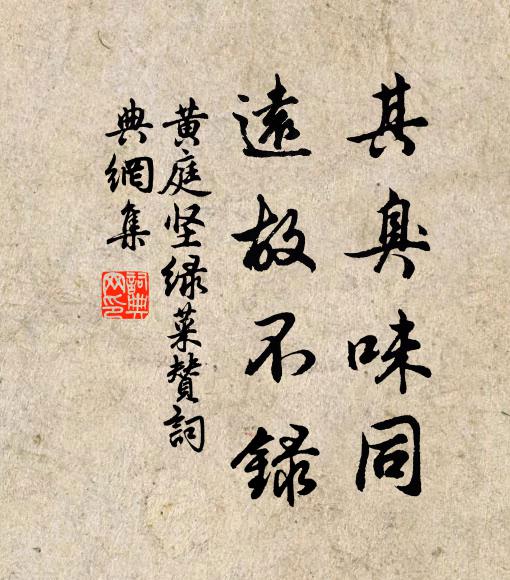 其臭味同
遠故不録
黄庭坚緑菜賛詞
典網集
詞典
网印